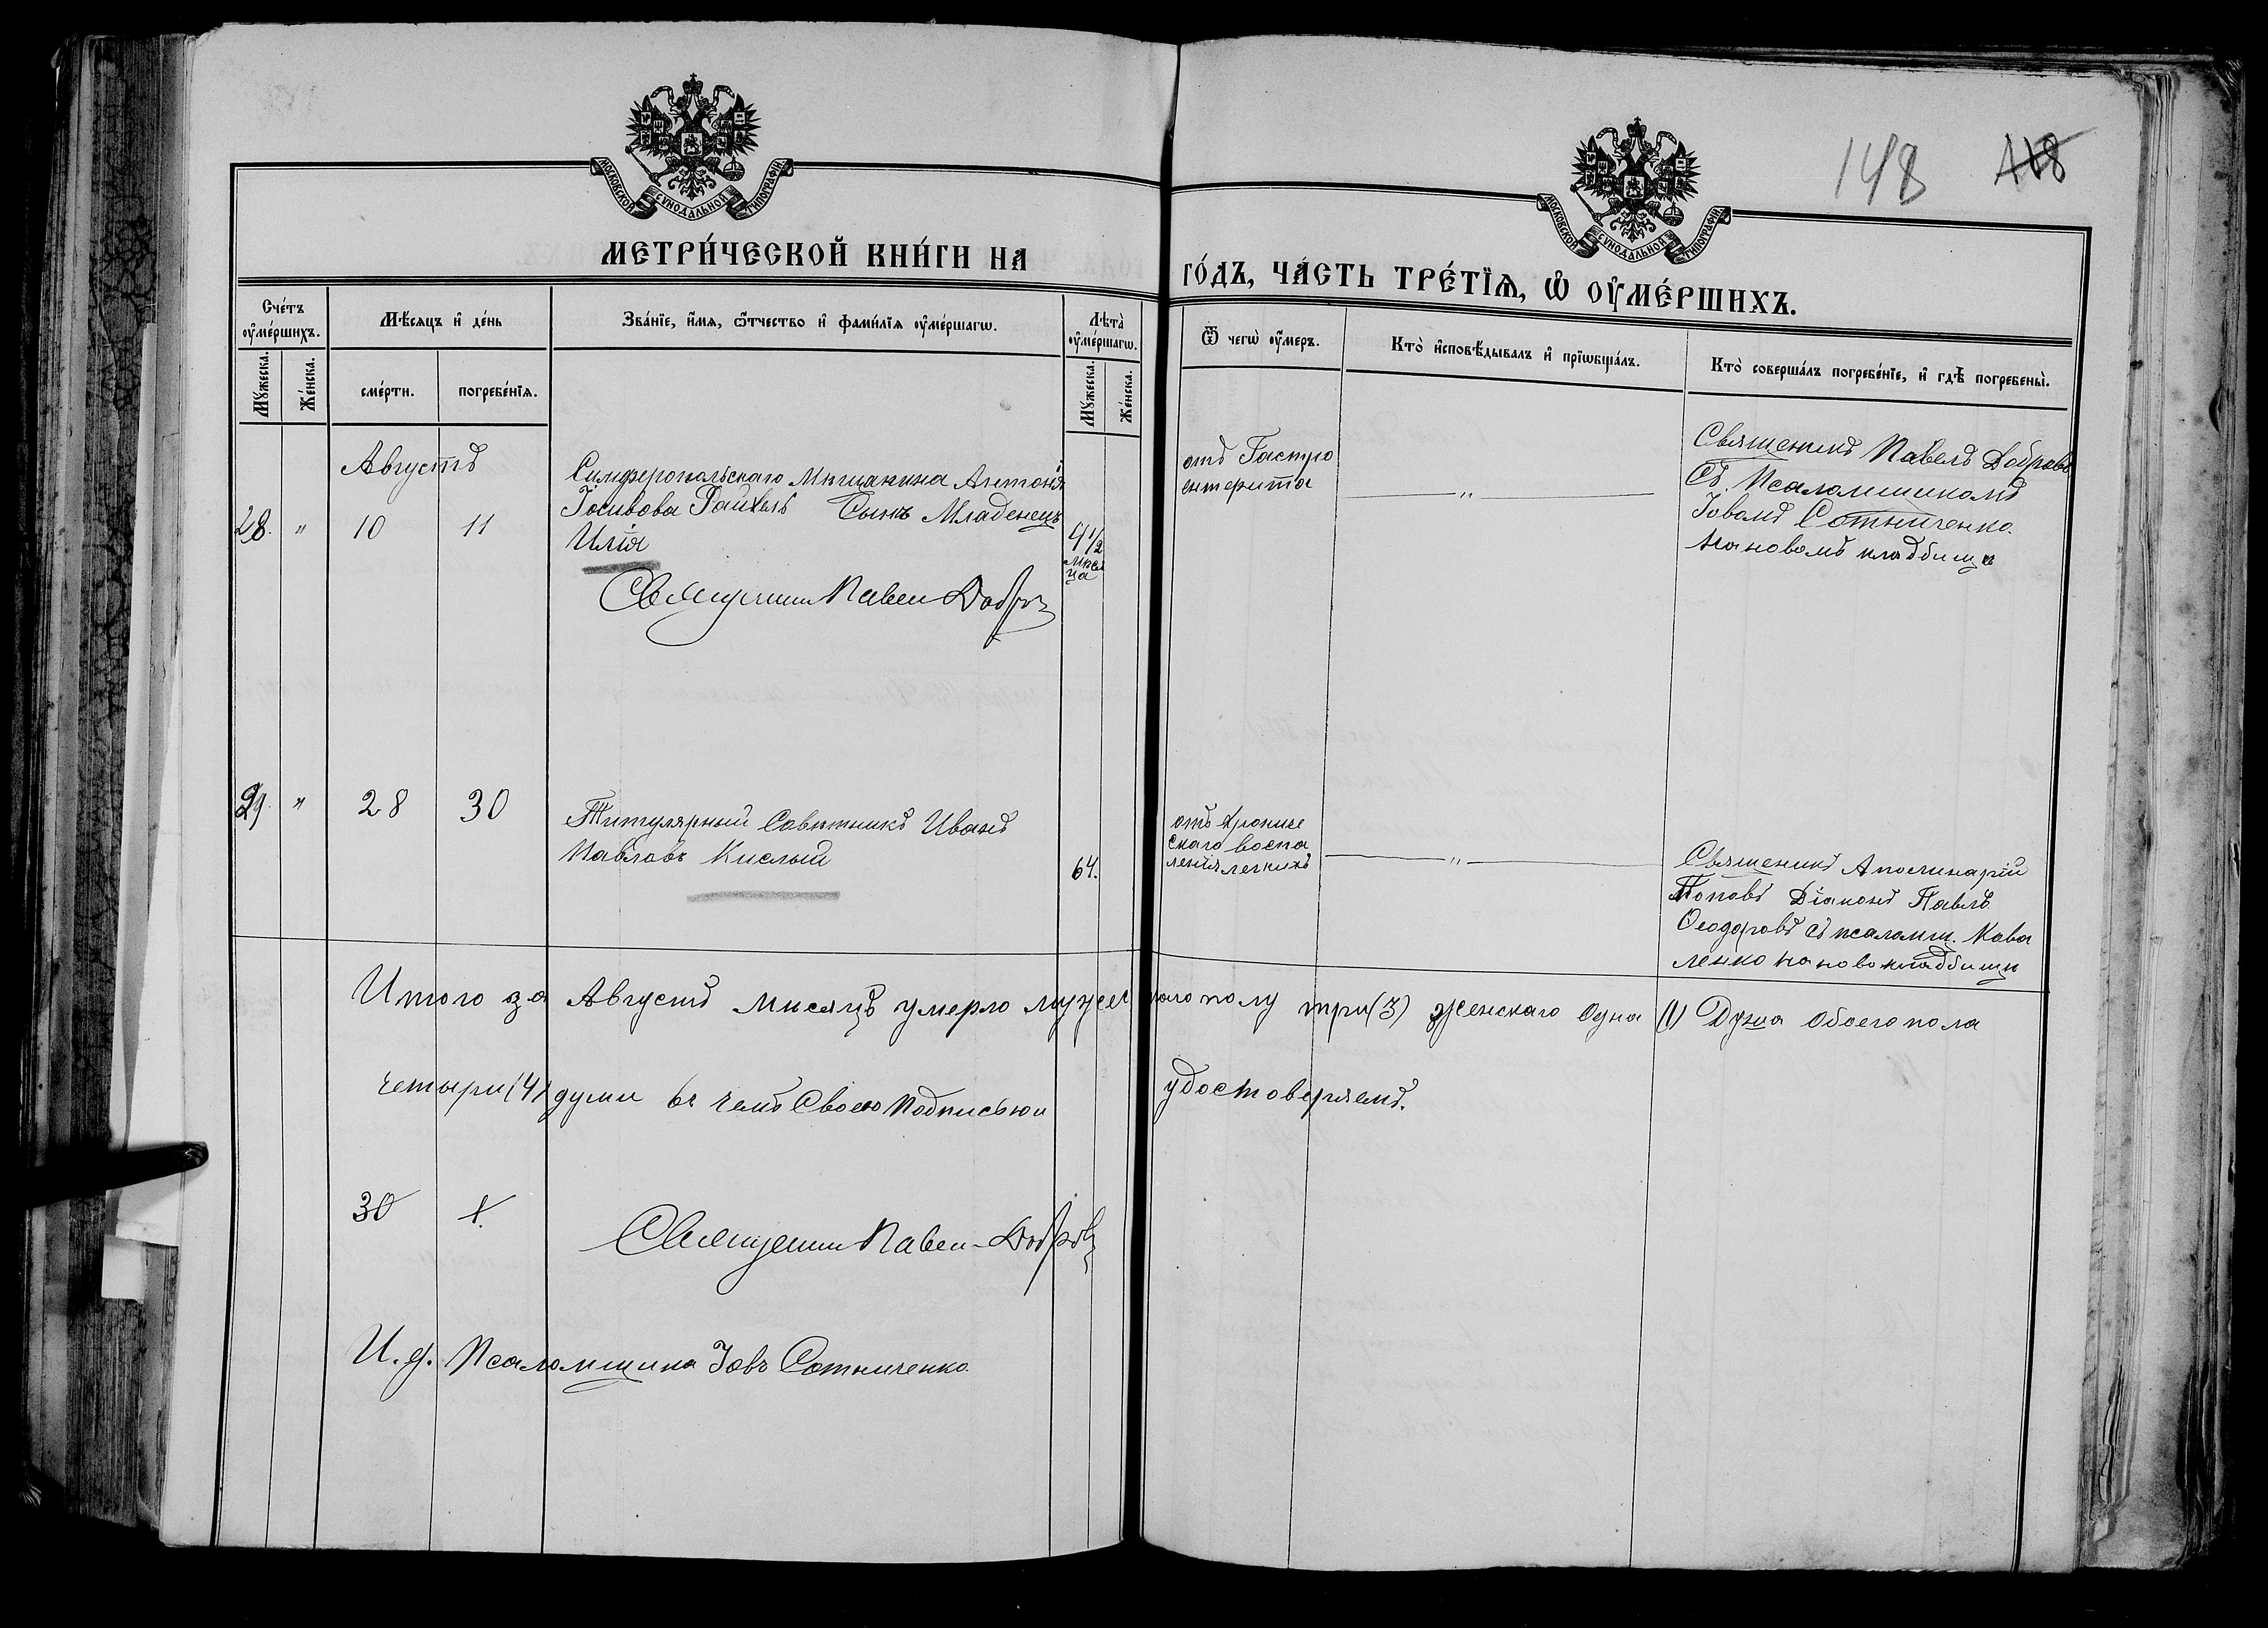 148 118
МОСКОВСКОЙ СУНОДАЛЬНОЙ ТИПОГРАФІИ
МОСКОВСКОЙ СУНОДАЛЬНОЙ ТИПОГРАФІИ
МЕТРИ́ЧЕСКОЙ КНИ́ГИ НА
ГО́ДЪ, ЧА́СТЬ ТРЕ́ТЇѦ, Ѡ҆ ОУ҆МЕ́РШИХЪ.
Сче́тъ оу҆ме́ршихъ.
Мꙋ́жеска.
Же́нска.
Мѣ́сяцъ и҆ де́нь
сме́рти.
погребе́нїѧ.
Зва́нїе, и҆́мѧ, ѻ҆́тчество и҆ фами́лїѧ оу҆ме́ршагѡ.
Лѣта̀ оу҆ме́ршагѡ.
Мꙋ́жеска.
Же́нска.
Ѿ чегѡ̀ оу҆́меръ.
Кто̀ и҆сповѣ́дывалъ и҆ прїѡбща́лъ.
Кто̀ соверша́лъ погребе́нїе, и҆ гдѣ̀ погребены̀.
Августъ
28. " 10 11
Симферопольскаго Мѣщанина Антонія
Іосивова Сынъ Младенецъ
Илія
4 1/2
мѣся
ца
отъ Гастро
ентерита
"
Священикъ Павелъ Добровъ
Съ Псаломщикомъ
Іовомъ Сотниченко.
на новомъ кладбище
Священик Павел Добров
29. " 28 30
Титулярный Совѣтникъ Иванъ
Павловъ Кислый
64.
отъ хрониче
скаго воспа
ленія легкихъ
"
Священикъ Аполинарій
Поповъ Діаконъ Павлъ
Ѳеодоровъ съ псаломщ. Кова
ленко на ново кладбищѣ
Итого за Августъ мѣсяцъ умерло мужескаго полу три (3) женскаго одна (1) Душа обоего пола
четыри (4) души въ чемъ Своею Подписью и удостоверяемъ.
30 1.
Священик Павел Добров
И. д. Псаломщика Іовъ Сотниченко.